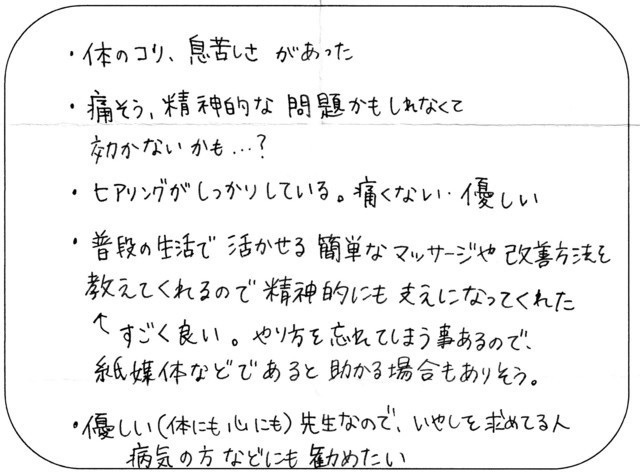 ・体のコリ、息苦しさ があった
・痛そう、精神的な 問題かもしれなくて
効かないかも…？
・ヒアリングがしっかりしている。痛くない・優しい
・普段の生活で 活かせる 簡単なマッサージや 改善方法を
教えてくれるので 精神的にも 支えになってくれた
↑ すごく良い。やり方を忘れてしまう事あるので、
紙媒体などであると 助かる場合もありそう。
・優しい(体にも心にも)先生なので、いやしを求めてる人
病気の方などにも 勧めたい